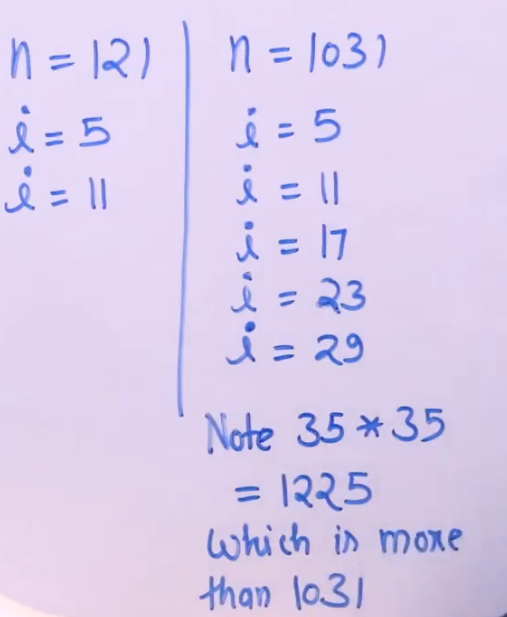 n = 121
i = 5
i = 11
n = 1031
i = 5
i = 11
i = 17
i = 23
i = 29
Note 35 * 35
= 1225
which is more
than 1031